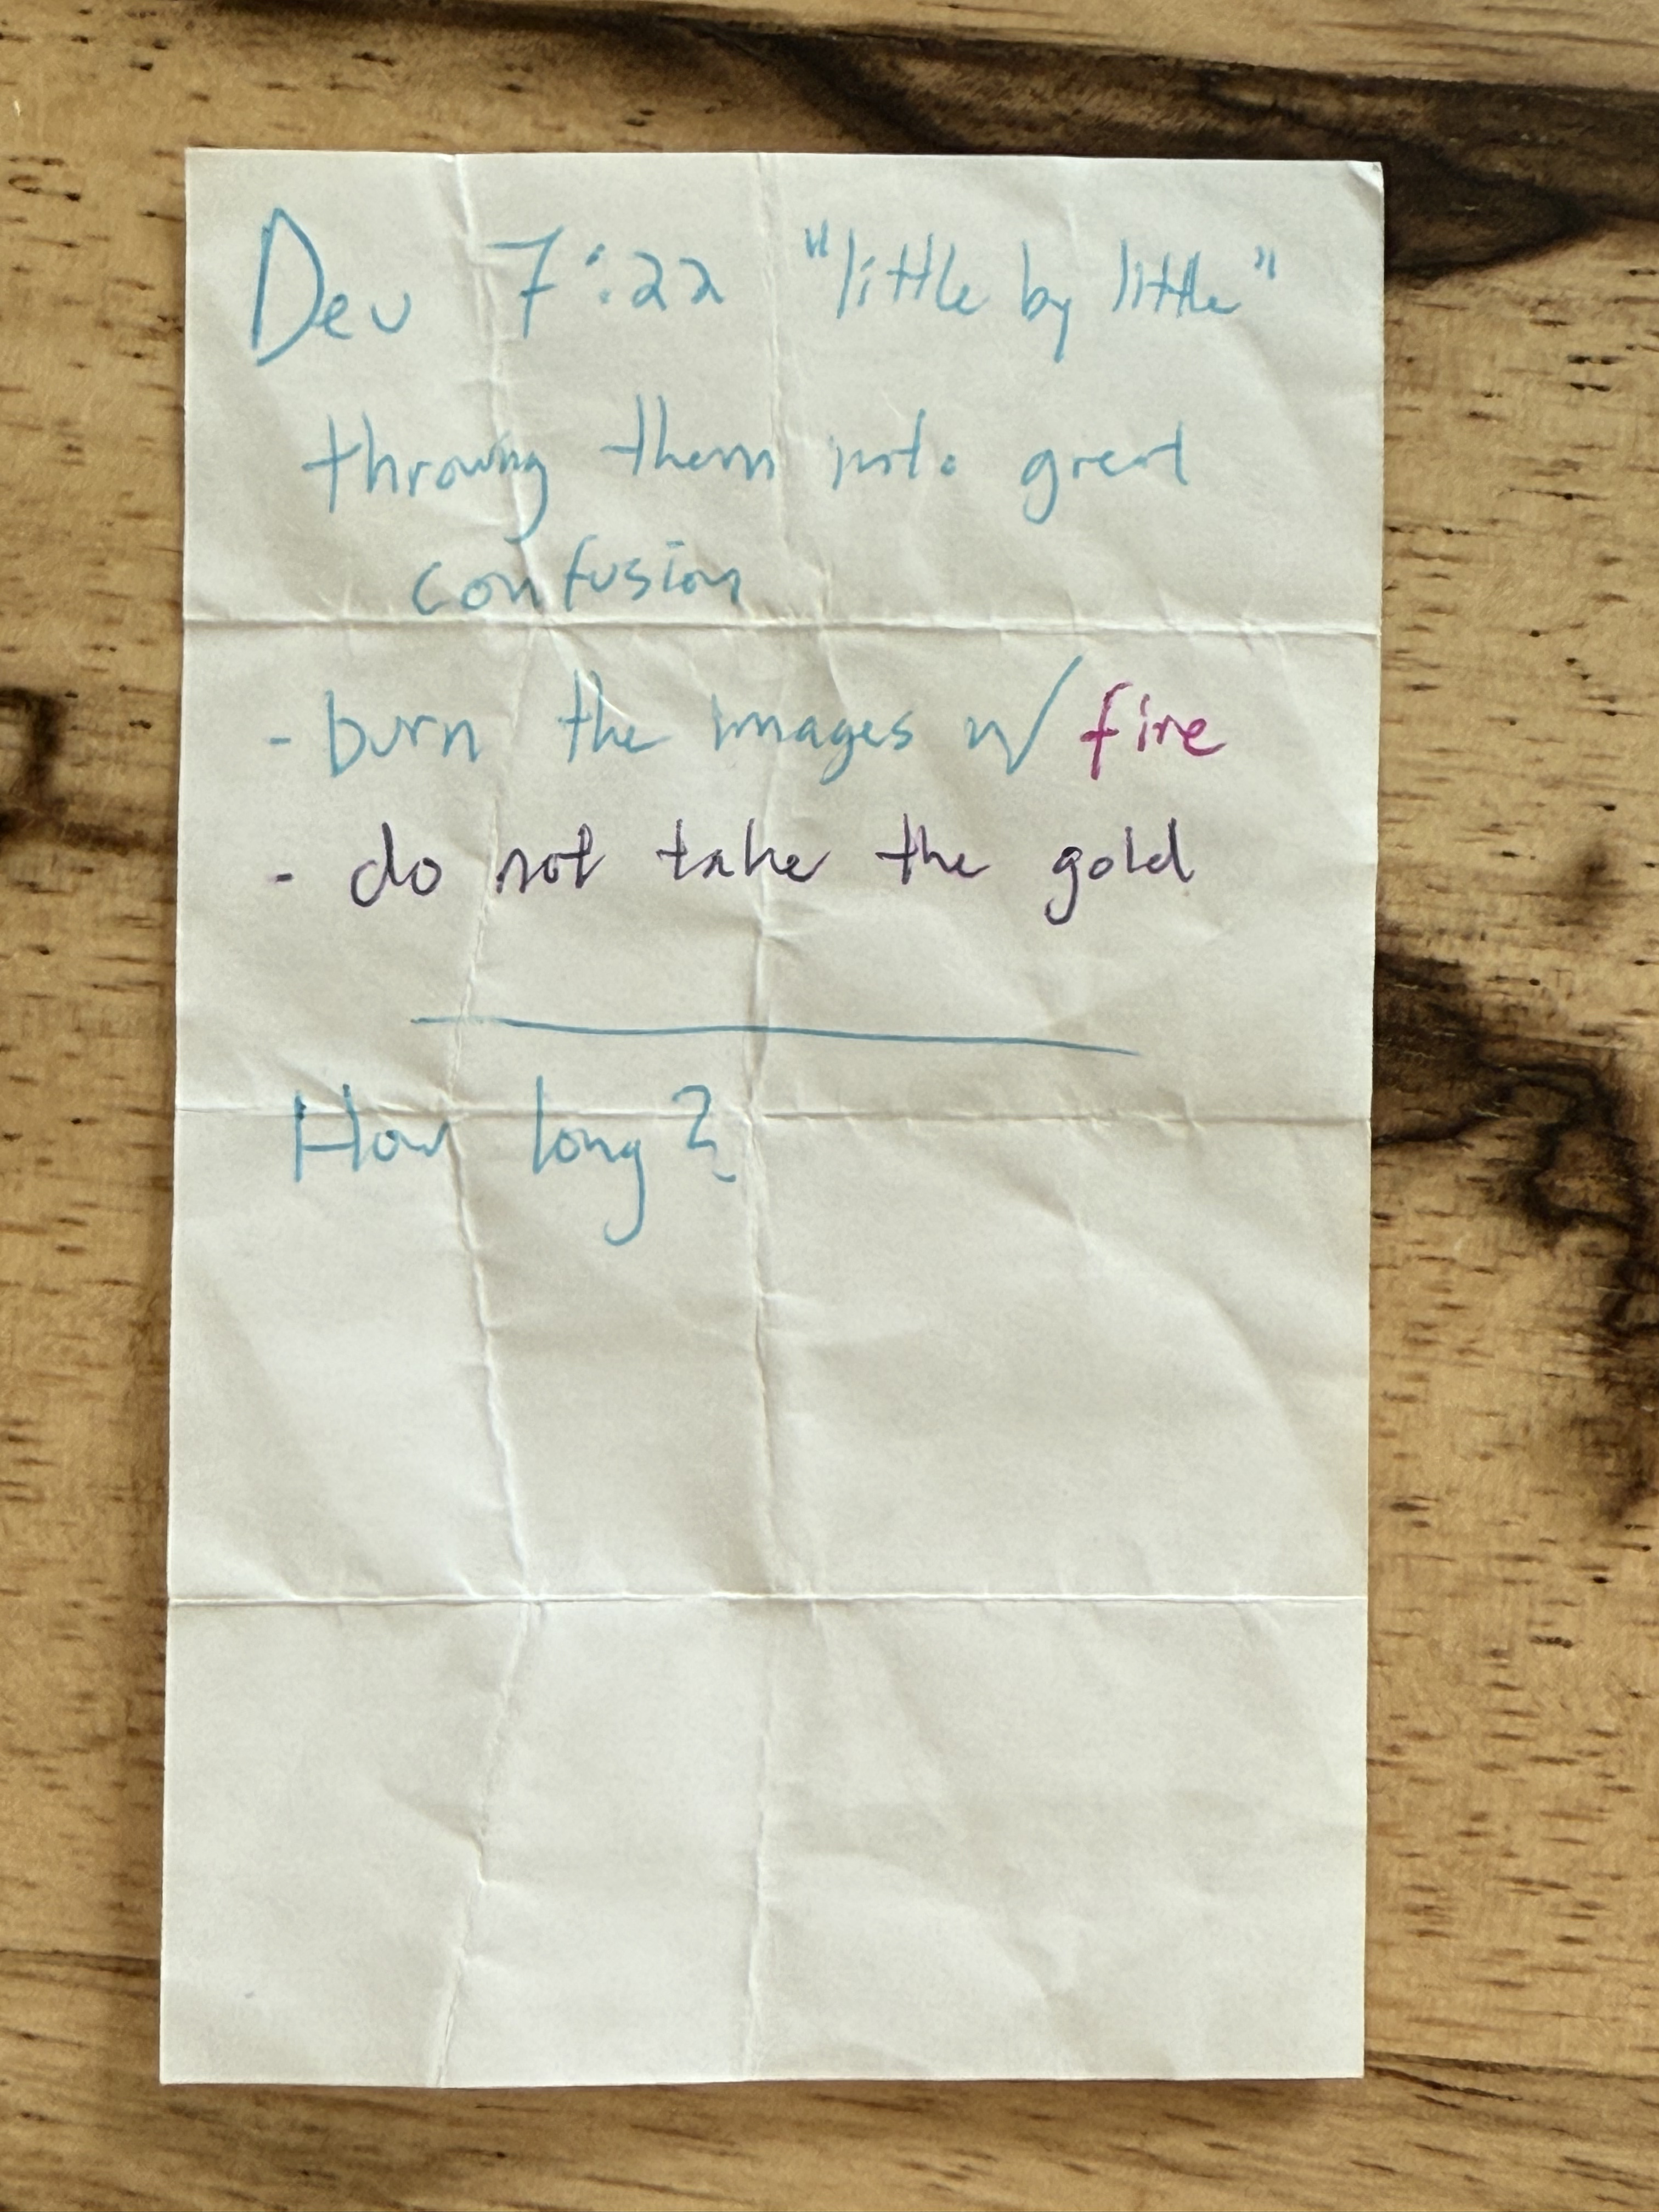 Deu 7:22 "little by little"
throwing them into great
confusion
- burn the images w/ fire
- do not take the gold
How long?